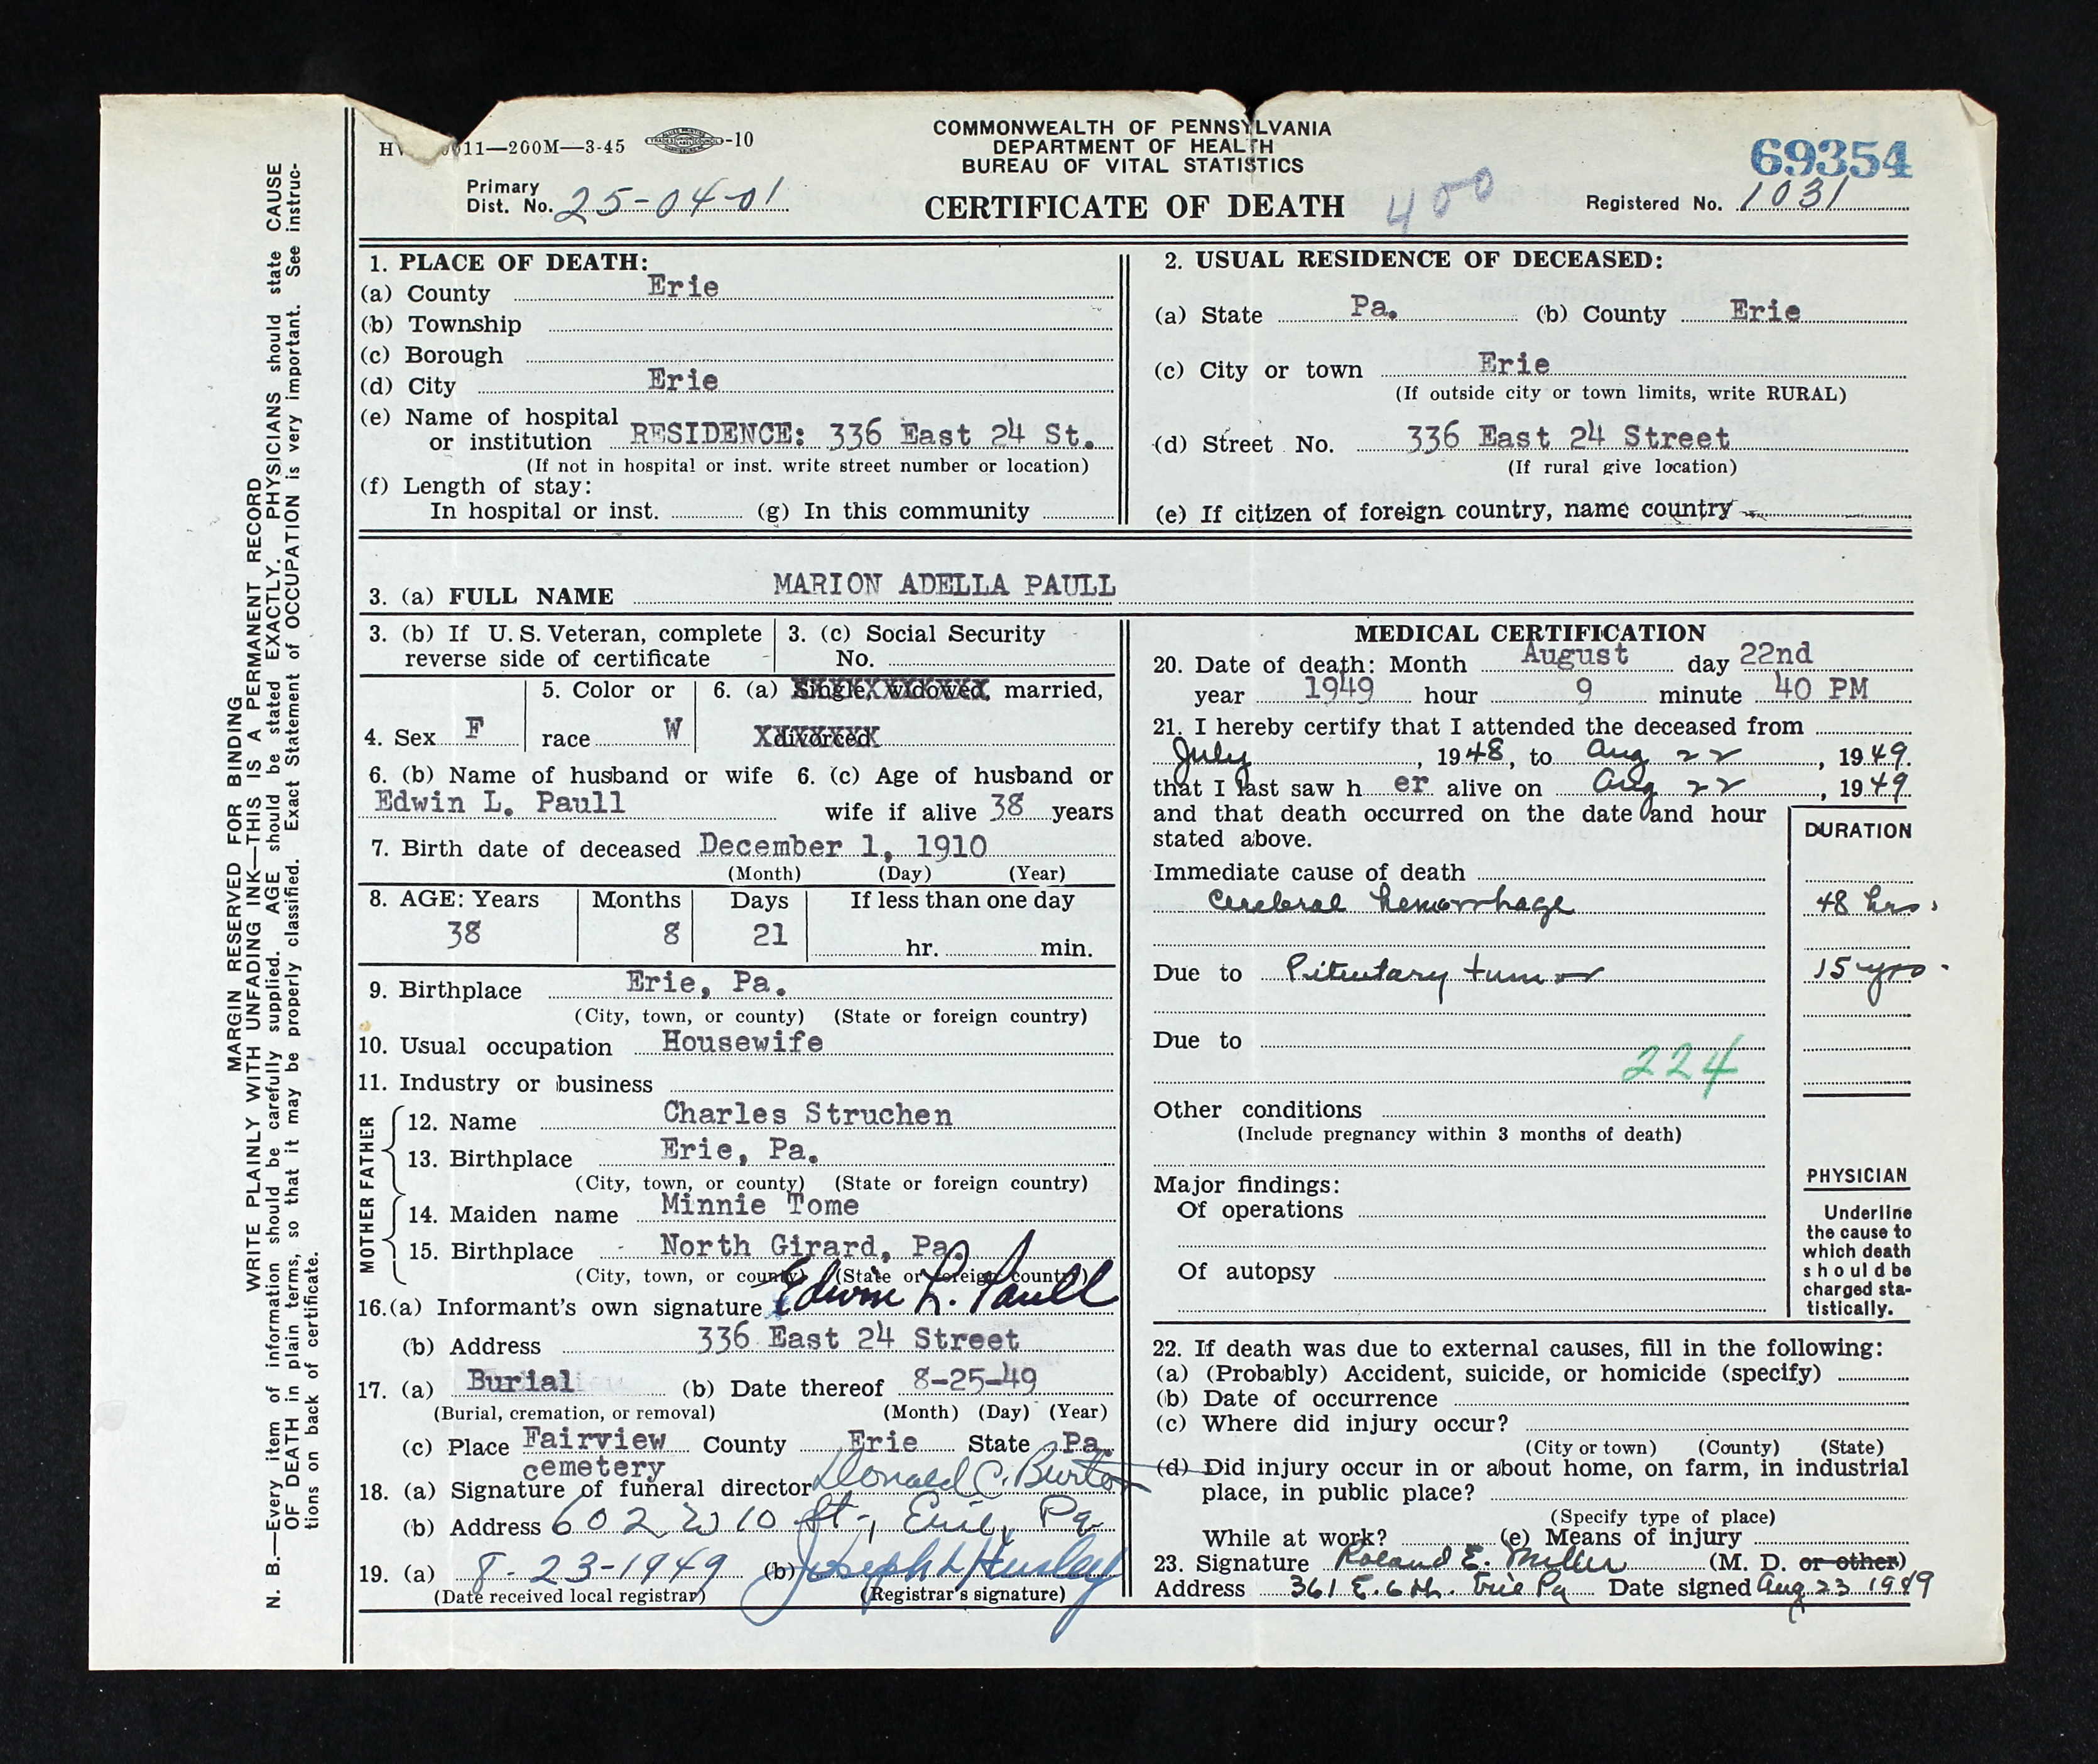 HV 011—200M—3-45 -10
COMMONWEALTH OF PENNSYLVANIA
DEPARTMENT OF HEALTH
BUREAU OF VITAL STATISTICS
69354
Primary
Dist. No. 25-04-01
CERTIFICATE OF DEATH
400
Registered No. 1031
MARGIN RESERVED FOR BINDING
WRITE PLAINLY WITH UNFADING INK—THIS IS A PERMANENT RECORD
N. B.—Every item of information should be carefully supplied. AGE should be stated EXACTLY. PHYSICIANS should state CAUSE
OF DEATH in plain terms, so that it may be properly classified. Exact Statement of OCCUPATION is very important. See instruc-
tions on back of certificate.
1. PLACE OF DEATH:
(a) County Erie
(b) Township
(c) Borough
(d) City Erie
(e) Name of hospital
or institution RESIDENCE: 336 East 24 St.
(If not in hospital or inst. write street number or location)
(f) Length of stay:
In hospital or inst. (g) In this community
2. USUAL RESIDENCE OF DECEASED:
(a) State Pa. (b) County Erie
(c) City or town Erie
(If outside city or town limits, write RURAL)
(d) Street No. 336 East 24 Street
(If rural give location)
(e) If citizen of foreign country, name country
3. (a) FULL NAME MARION ADELLA PAULL
3. (b) If U. S. Veteran, complete
reverse side of certificate
3. (c) Social Security
No.
4. Sex F
5. Color or
race W
6. (a) Single, widowed, married,
divorced
6. (b) Name of husband or wife
Edwin L. Paull
6. (c) Age of husband or
wife if alive 38 years
7. Birth date of deceased December 1, 1910
(Month) (Day) (Year)
8. AGE: Years Months Days If less than one day
38 8 21 hr. min.
9. Birthplace Erie, Pa.
(City, town, or county) (State or foreign country)
10. Usual occupation Housewife
11. Industry or business
FATHER
12. Name Charles Struchen
13. Birthplace Erie, Pa.
(City, town, or county) (State or foreign country)
MOTHER
14. Maiden name Minnie Tome
15. Birthplace North Girard, Pa.
(City, town, or county) (State or foreign country)
16.(a) Informant's own signature Edwin L. Paull
(b) Address 336 East 24 Street
17. (a) Burial (b) Date thereof 8-25-49
(Burial, cremation, or removal) (Month) (Day) (Year)
(c) Place Fairview County Erie State Pa.
cemetery
18. (a) Signature of funeral director Donald C. Burton
(b) Address 602 W 10 St., Erie, Pa
19. (a) 8-23-1949 (b) Joseph L
(Date received local registrar) (Registrar's signature)
MEDICAL CERTIFICATION
20. Date of death: Month August day 22nd
year 1949 hour 9 minute 40 PM
21. I hereby certify that I attended the deceased from
July, 1948, to Aug 22, 1949.
that I last saw h er alive on Aug 22, 1949.
and that death occurred on the date and hour
stated above.
DURATION
Immediate cause of death
Cerebral hemorrhage 48 hrs.
Due to Pituitary tumor 15 yrs.
Due to
224
Other conditions
(Include pregnancy within 3 months of death)
Major findings:
Of operations
Of autopsy
PHYSICIAN
Underline
the cause to
which death
should be
charged sta-
tistically.
22. If death was due to external causes, fill in the following:
(a) (Probably) Accident, suicide, or homicide (specify)
(b) Date of occurrence
(c) Where did injury occur?
(City or town) (County) (State)
(d) Did injury occur in or about home, on farm, in industrial
place, in public place?
(Specify type of place)
While at work? (e) Means of injury
23. Signature Roland E. Miller (M. D. or other)
Address 361 E. 6th. Erie Pa Date signed Aug 23 1949